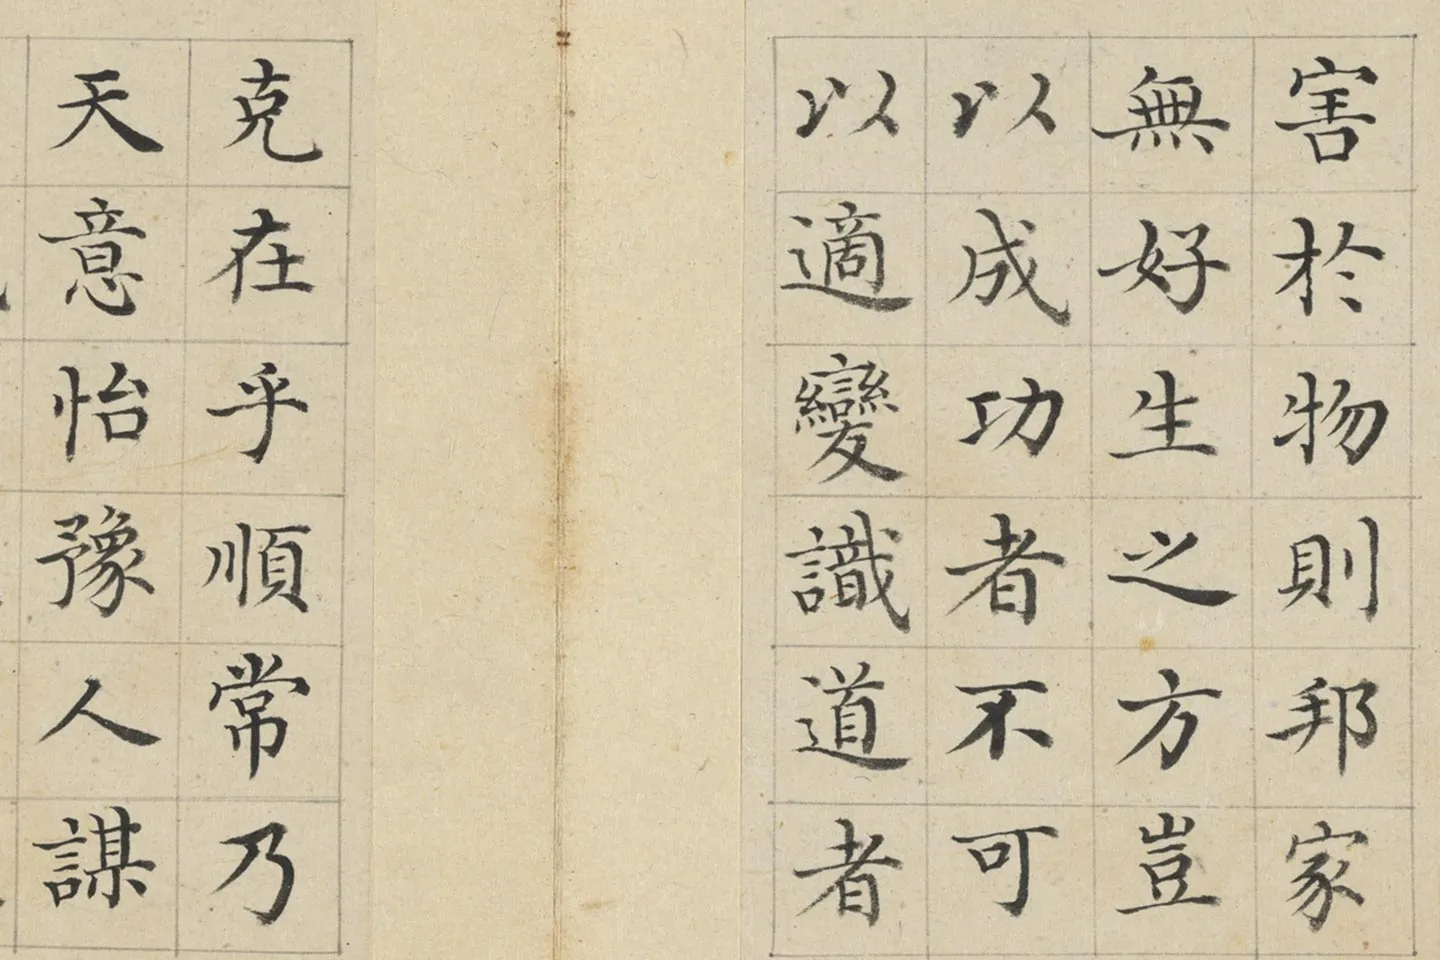 害於物則邦家
無好生之方豈
以成功者不可
以適變識道者
克在乎順常乃
天意怡豫人謀